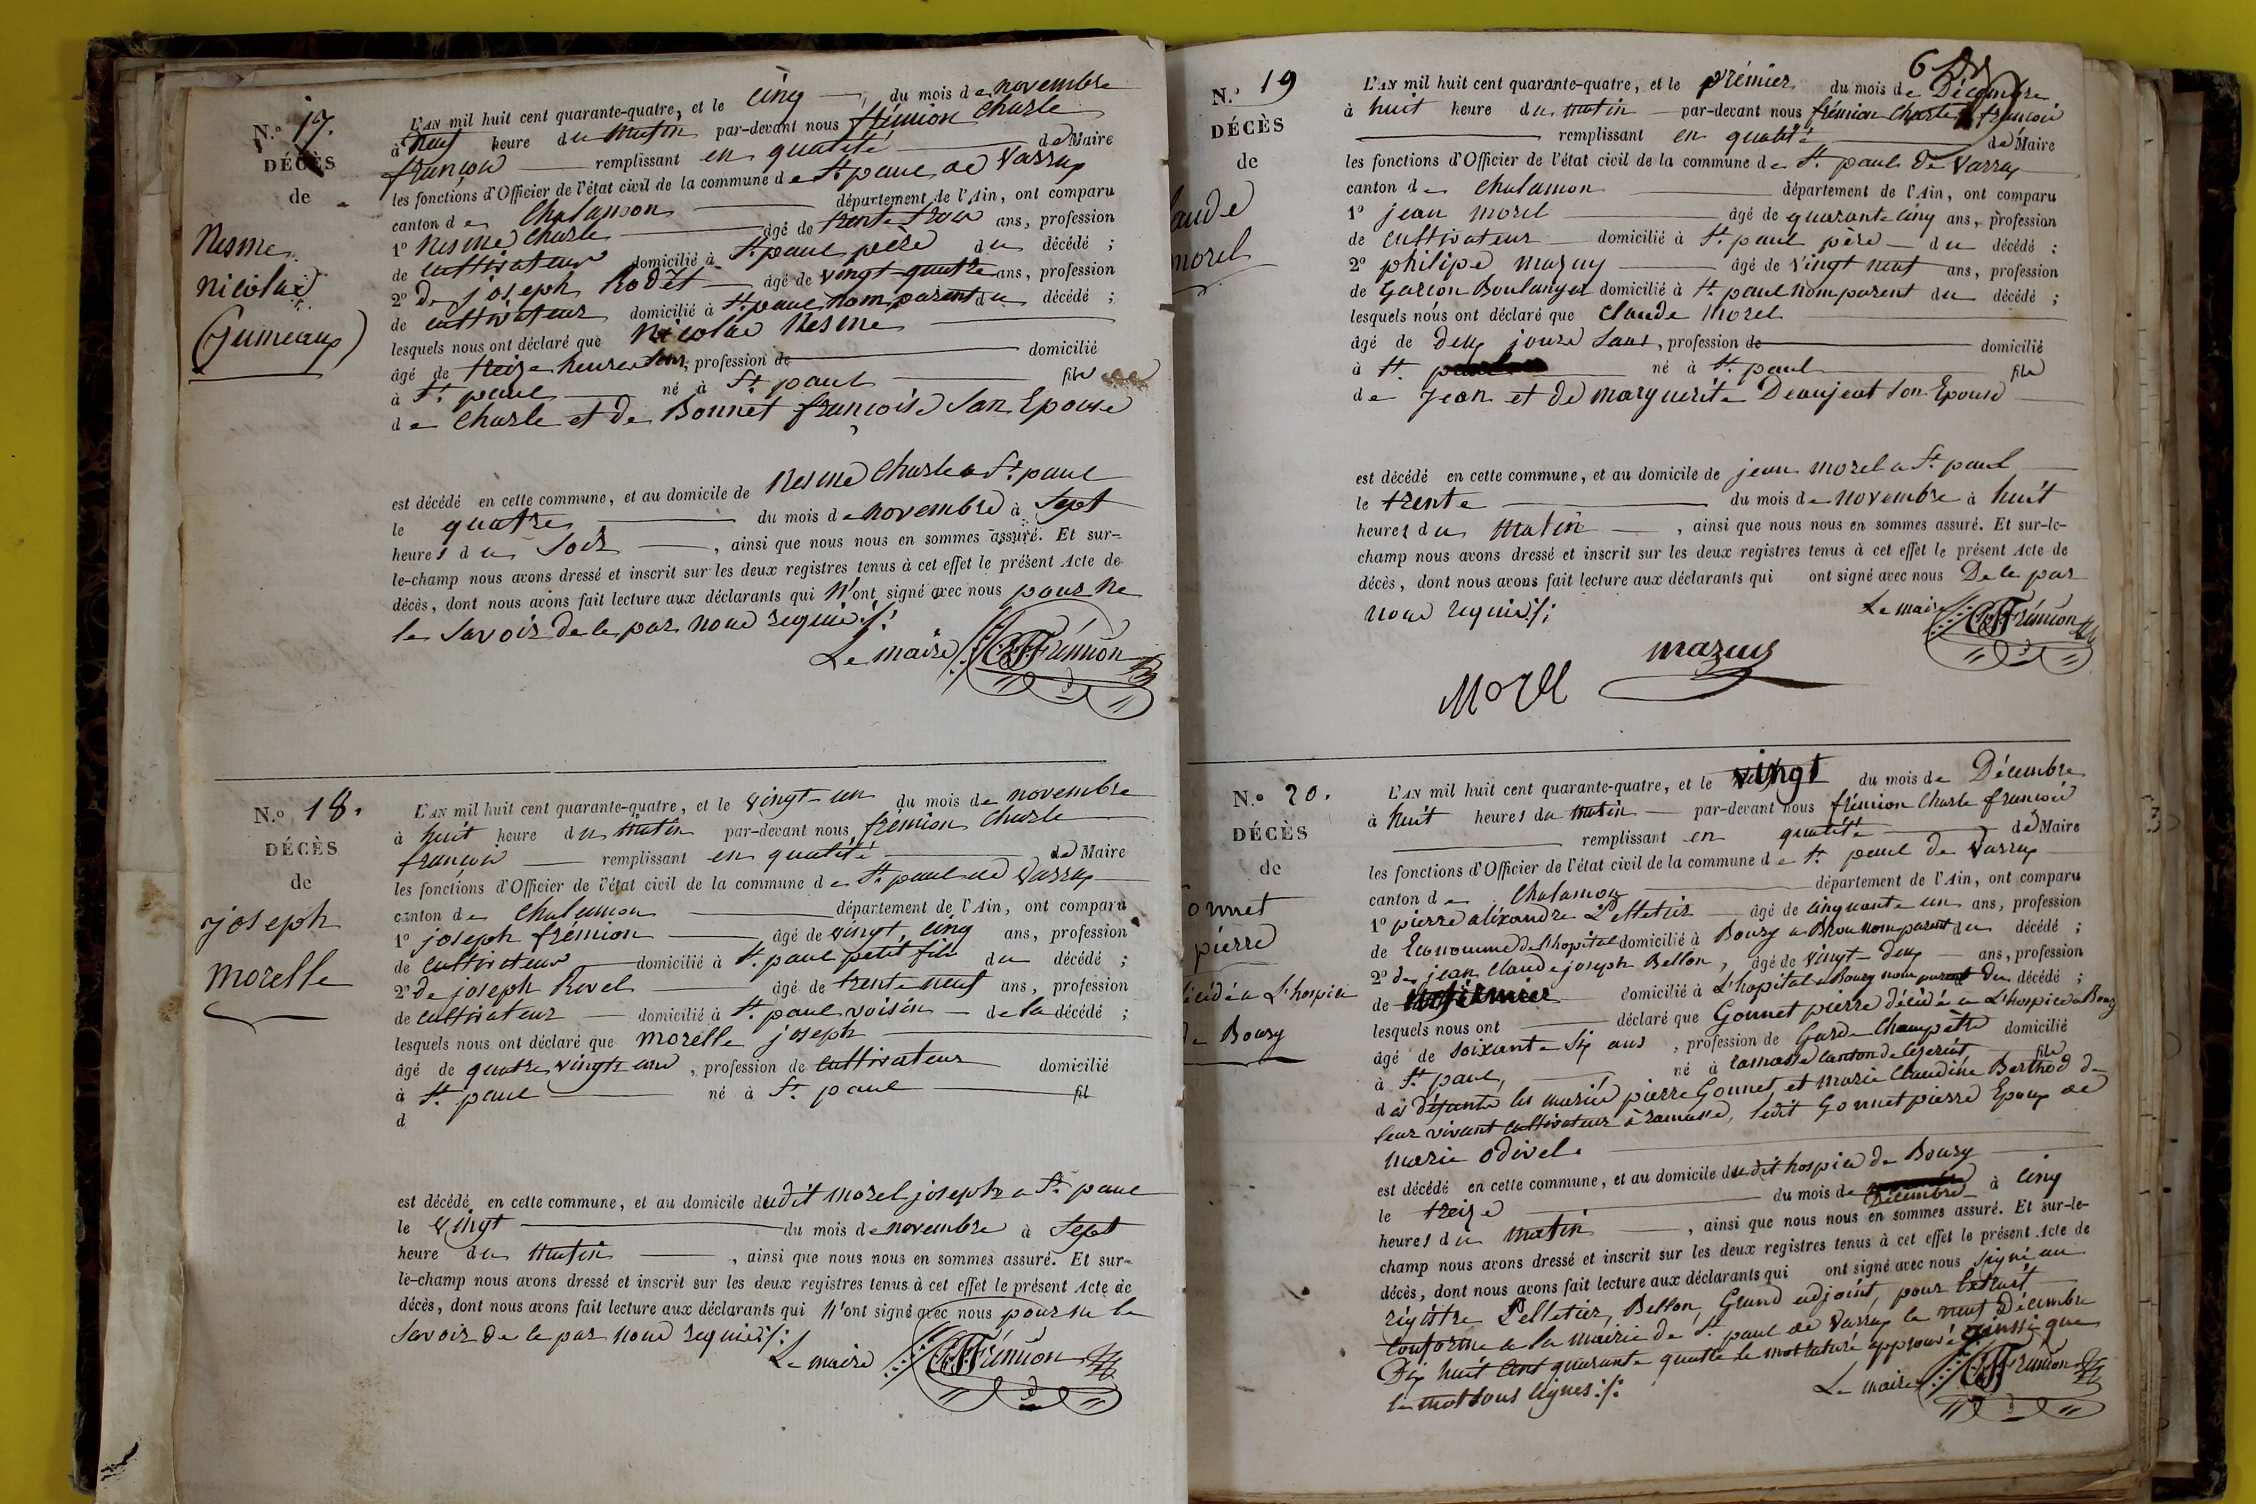 N.o 17.
DÉCÈS
de
Nesme
nicolas
(jumeaux)
L'AN mil huit cent quarante-quatre, et le cinq du mois de novembre
à neuf heure du matin par-devant nous frémion Charle
françois remplissant en qualité de Maire
les fonctions d'Officier de l'état civil de la commune de St. paul de Varax
canton de Chalamon département de l'Ain, ont comparu
1o Nesme Charle âgé de trente trois ans, profession
de cultivateur domicilié à St. paul père du décédé ;
2o de joseph Rodet âgé de vingt-quatre ans, profession
de cultivateur domicilié à St. paul nom parent du décédé ;
lesquels nous ont déclaré que Nicolas Nesme
âgé de treize heures sans, profession de domicilié
à St. paul né à St. paul fils
de Charle et de Bonnet françoise San Epouse
est décédé en cette commune, et au domicile de Nesme Charle a St. paul
le quatre du mois de novembre à Sept
heures du Soir , ainsi que nous nous en sommes assuré. Et sur-
le-champ nous avons dressé et inscrit sur les deux registres tenus à cet effet le présent Acte de
décès, dont nous avons fait lecture aux déclarants qui N'ont signé avec nous pour ne
le Savoir de ce par nous requis ./.
Le maire Frémion
N.o 18.
DÉCÈS
de
joseph
morelle
L'AN mil huit cent quarante-quatre, et le vingt-un du mois de novembre
à huit heure du matin par-devant nous frémion Charle
françois remplissant en qualité de Maire
les fonctions d'Officier de l'état civil de la commune de St. paul de Varax
canton de Chalamon département de l'Ain, ont comparu
1o joseph frémion âgé de vingt, cinq ans, profession
de cultivateur domicilié à St. paul petit fils du décédé ;
2o de joseph Revel âgé de trente neuf ans, profession
de cultivateur domicilié à St. paul voisin de la décédé ;
lesquels nous ont déclaré que morelle joseph
âgé de quatre vingts ans , profession de cultivateur domicilié
à St. paul né à St. paul fil
d
est décédé en cette commune, et au domicile dudit morel joseph a St. paul
le vingt du mois de novembre à Sept
heure du matin , ainsi que nous nous en sommes assuré. Et sur-
le-champ nous avons dressé et inscrit sur les deux registres tenus à cet effet le présent Acte de
décès, dont nous avons fait lecture aux déclarants qui N'ont signé avec nous pour ne le
Savoir de ce par nous requis ./.
Le maire Frémion
N.o 19
DÉCÈS
de
laude
morel
L'AN mil huit cent quarante-quatre, et le prémier du mois de Décembre
à huit heure du matin par-devant nous frémion Charle françois
remplissant en qualité de Maire
les fonctions d'Officier de l'état civil de la commune de St. paul de Varax
canton de Chalamon département de l'Ain, ont comparu
1o jean morel âgé de quarante cinq ans, profession
de cultivateur domicilié à St. paul père du décédé ;
2o philipe mazuy âgé de vingt neuf ans, profession
de Garcon Boulanger domicilié à St. paul nom parent du décédé ;
lesquels nous ont déclaré que Claude Morel
âgé de deux jours sans, profession de domicilié
à St. né à St. paul fils
de Jean et de marguerite Deaujeat Son Epouse
est décédé en cette commune, et au domicile de jean morel a St. paul
le trente du mois de novembre à huit
heures du matin , ainsi que nous nous en sommes assuré. Et sur-le-
champ nous avons dressé et inscrit sur les deux registres tenus à cet effet le présent Acte de
décès, dont nous avons fait lecture aux déclarants qui ont signé avec nous De ce par
nous requis ./.
Le maire Frémion
mazuy
Morel
N.o 20.
DÉCÈS
de
onnet
pierre
écédé a L'hospice
de Bourg
L'AN mil huit cent quarante-quatre, et le vingt du mois de Décembre
à huit heures du matin par-devant nous frémion Charle françois
remplissant en qualité de Maire
les fonctions d'Officier de l'état civil de la commune de St. paul de Varax
canton de Chalamon département de l'Ain, ont comparu
1o pierre aléxandre Pelletier âgé de cinquante un ans, profession
de Econnome de l'hopital domicilié à Bourg a Brou nom parent du décédé ;
2o de jean Claude joseph Bellon, âgé de vingt-deux ans, profession
de infirmier domicilié à L'hopital a Bourg nom parent du décédé ;
lesquels nous ont déclaré que Gonnet pierre décédé a L'hospice a Bourg
âgé de soixante Six ans , profession de Garde Champètre domicilié
à St. paul, né à ramasse canton de Cézeriat fils
des défunts les mariés pierre Gonnet et marie Claudine Berthod de
leur vivant cultivateur à ramasse, ledit Gonnet pierre Epoux de
marie odivel.
est décédé en cette commune, et au domicile dudit hospice de Bourg
le treize du mois de Décembre à cinq
heures du matin , ainsi que nous nous en sommes assuré. Et sur-le-
champ nous avons dressé et inscrit sur les deux registres tenus à cet effet le présent Acte de
décès, dont nous avons fait lecture aux déclarants qui ont signé avec nous Signé au
régistre Pelletier, Bellon, Grand adjoint, pour Extrait
Conforme a la mairie de St. paul de Varax le neuf Décembre
Dix huit Cent quarante quatre le mot raturé approuvé ainsi que
le mot sous lignes ./.
Le maire Frémion